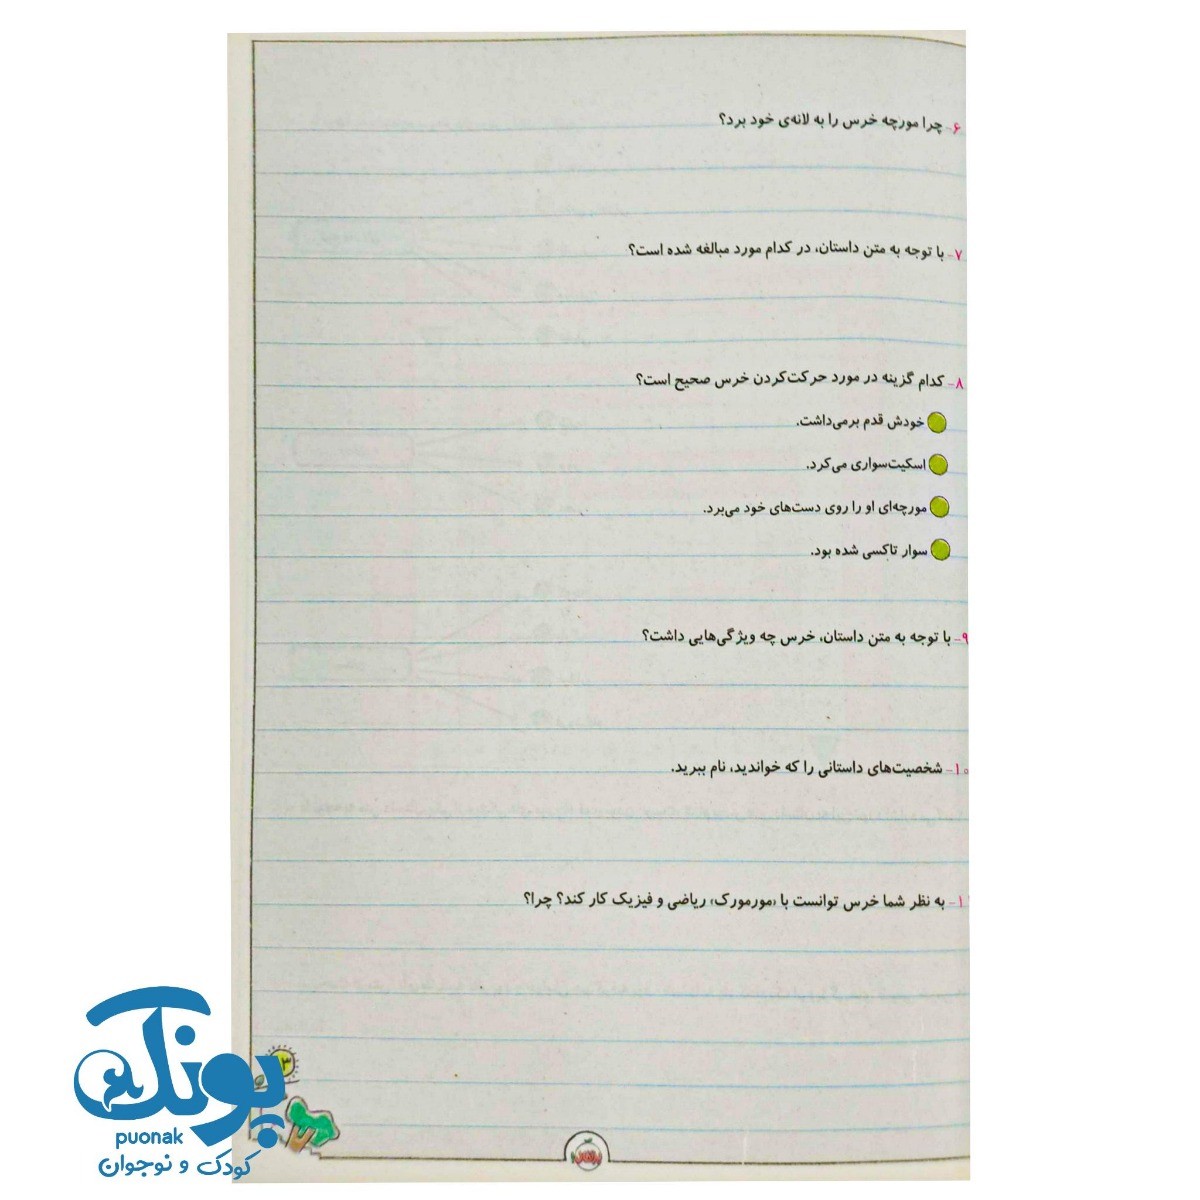 ۶- چرا مورچه خرس را به لانه‌ی خود برد؟
۷- با توجه به متن داستان، در کدام مورد مبالغه شده است؟
۸- کدام گزینه در مورد حرکت‌کردن خرس صحیح است؟
خودش قدم برمی‌داشت.
اسکیت‌سواری می‌کرد.
مورچه‌ای او را روی دست‌های خود می‌برد.
سوار تاکسی شده بود.
۹- با توجه به متن داستان، خرس چه ویژگی‌هایی داشت؟
۱۰- شخصیت‌های داستانی را که خواندید، نام ببرید.
۱۱- به نظر شما خرس توانست با «مورمورک» ریاضی و فیزیک کار کند؟ چرا؟
۳
پونک
puonak
کودک و نوجوان